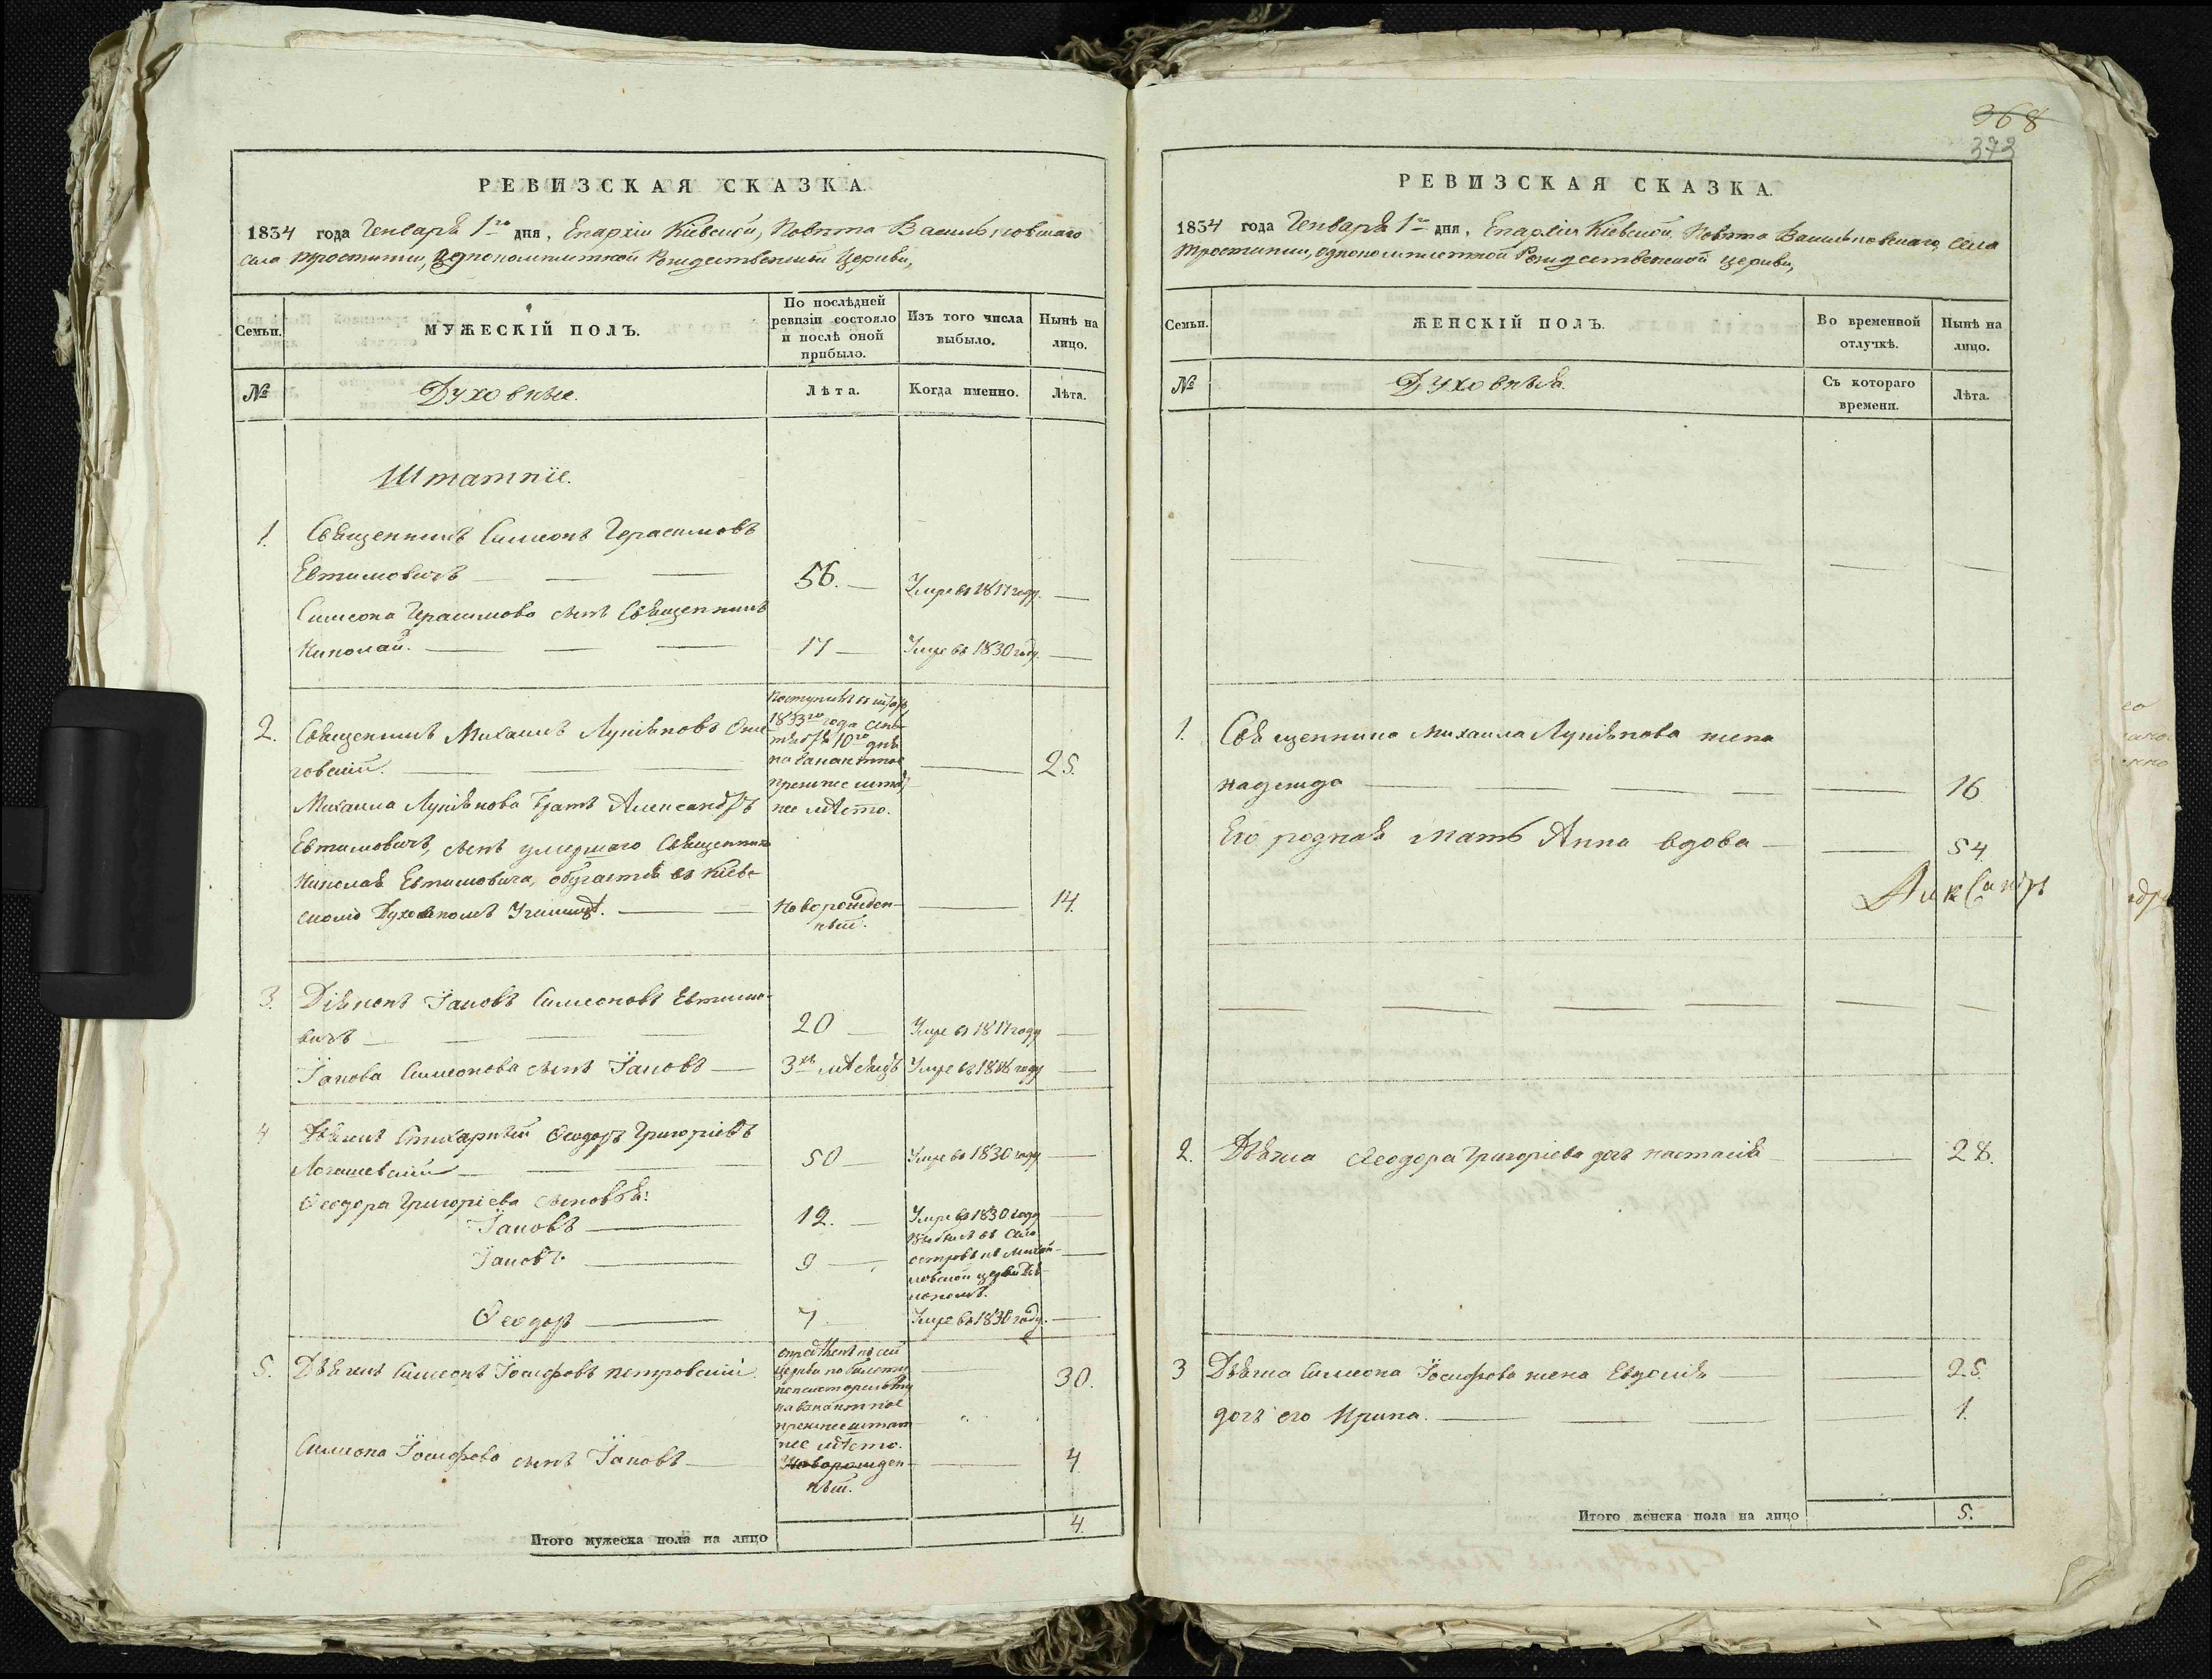 РЕВИЗСКАЯ СКАЗКА.
1834 года Генваря 1го дня, Епархіи Кіевской, Повѣта Васильковскаго
села Тростинки, однокомплектной Рождественской Церкви,
Семьи.
МУЖЕСКІЙ ПОЛЪ.
По послѣдней
ревизіи состояло
и послѣ оной
прибыло.
Изъ того числа
выбыло.
Нынѣ на
лицо.
№
Духовные.
Лѣта.
Когда именно.
Лѣта.
Штатніе.
1. Священникъ Симеонъ Герасимовъ
Евтимовичъ 56. Умре въ 1817 году.
Симеона Герасимова сынъ Священникъ
Николай. 17 Умре въ 1830 году.
Поступилъ
1833го года Сен-
тября 10го дня
на вакантное
прежнее штат-
нее мѣсто.
2. Священникъ Михаилъ Лукіяновъ
говскій. 25.
Михаила Лукіянова братъ Александръ
Евтимовичъ, сынъ умершаго Священника
Николая Евтимовича, обучается въ Кіево
Духовномъ Училищѣ. Новорожден-
ный. 14.
3. Діяконъ Іаковъ Симеоновъ Евтимо-
вичъ 20 Умре въ 1817 году
Іакова Симеонова сынъ Іаковъ 3хъ мѣсяцъ Умре въ 1818 году
4 Дьячекъ Стихарный Ѳеодоръ Григоріевъ
50 Умре въ 1830 году
Ѳеодора Григоріева сыновья:
Іаковъ 12. Умре въ 1830 году
Іаковъ. 9 Выбылъ въ село
Михай-
ловской церкви
Ѳеодоръ 7 Умре въ 1830 году.
5. Дьячекъ Симеонъ Іосифовъ Петровскій 30.
опредѣленъ къ сей
церкви по билету
консисторскому
на вакантное
прежнее штат
нее мѣсто.
Симеона Іосифова сынъ Іаковъ 4
Новорожден-
ный.
Итого мужеска пола на лицо 4.
368
373
РЕВИЗСКАЯ СКАЗКА.
1834 года Генваря 1го дня, Епархіи Кіевской, Повѣта Васильковскаго, села
Тростинки, однокомплектной Рождественской церкви,
Семьи.
ЖЕНСКІЙ ПОЛЪ.
Во временной
отлучкѣ.
Нынѣ на
лицо.
№
Духовныя.
Съ котораго
времени.
Лѣта.
1. Священника Михаила Лукіянова жена
Надежда 16
Его родная мать Анна вдова 54.
Александръ
2. Дьячка Ѳеодора Григоріева дочь Настасія 28.
3 Дьячка Симеона Іосифова жена Евдокія 25.
дочь его Ирина. 1.
Итого женска пола на лицо 5.